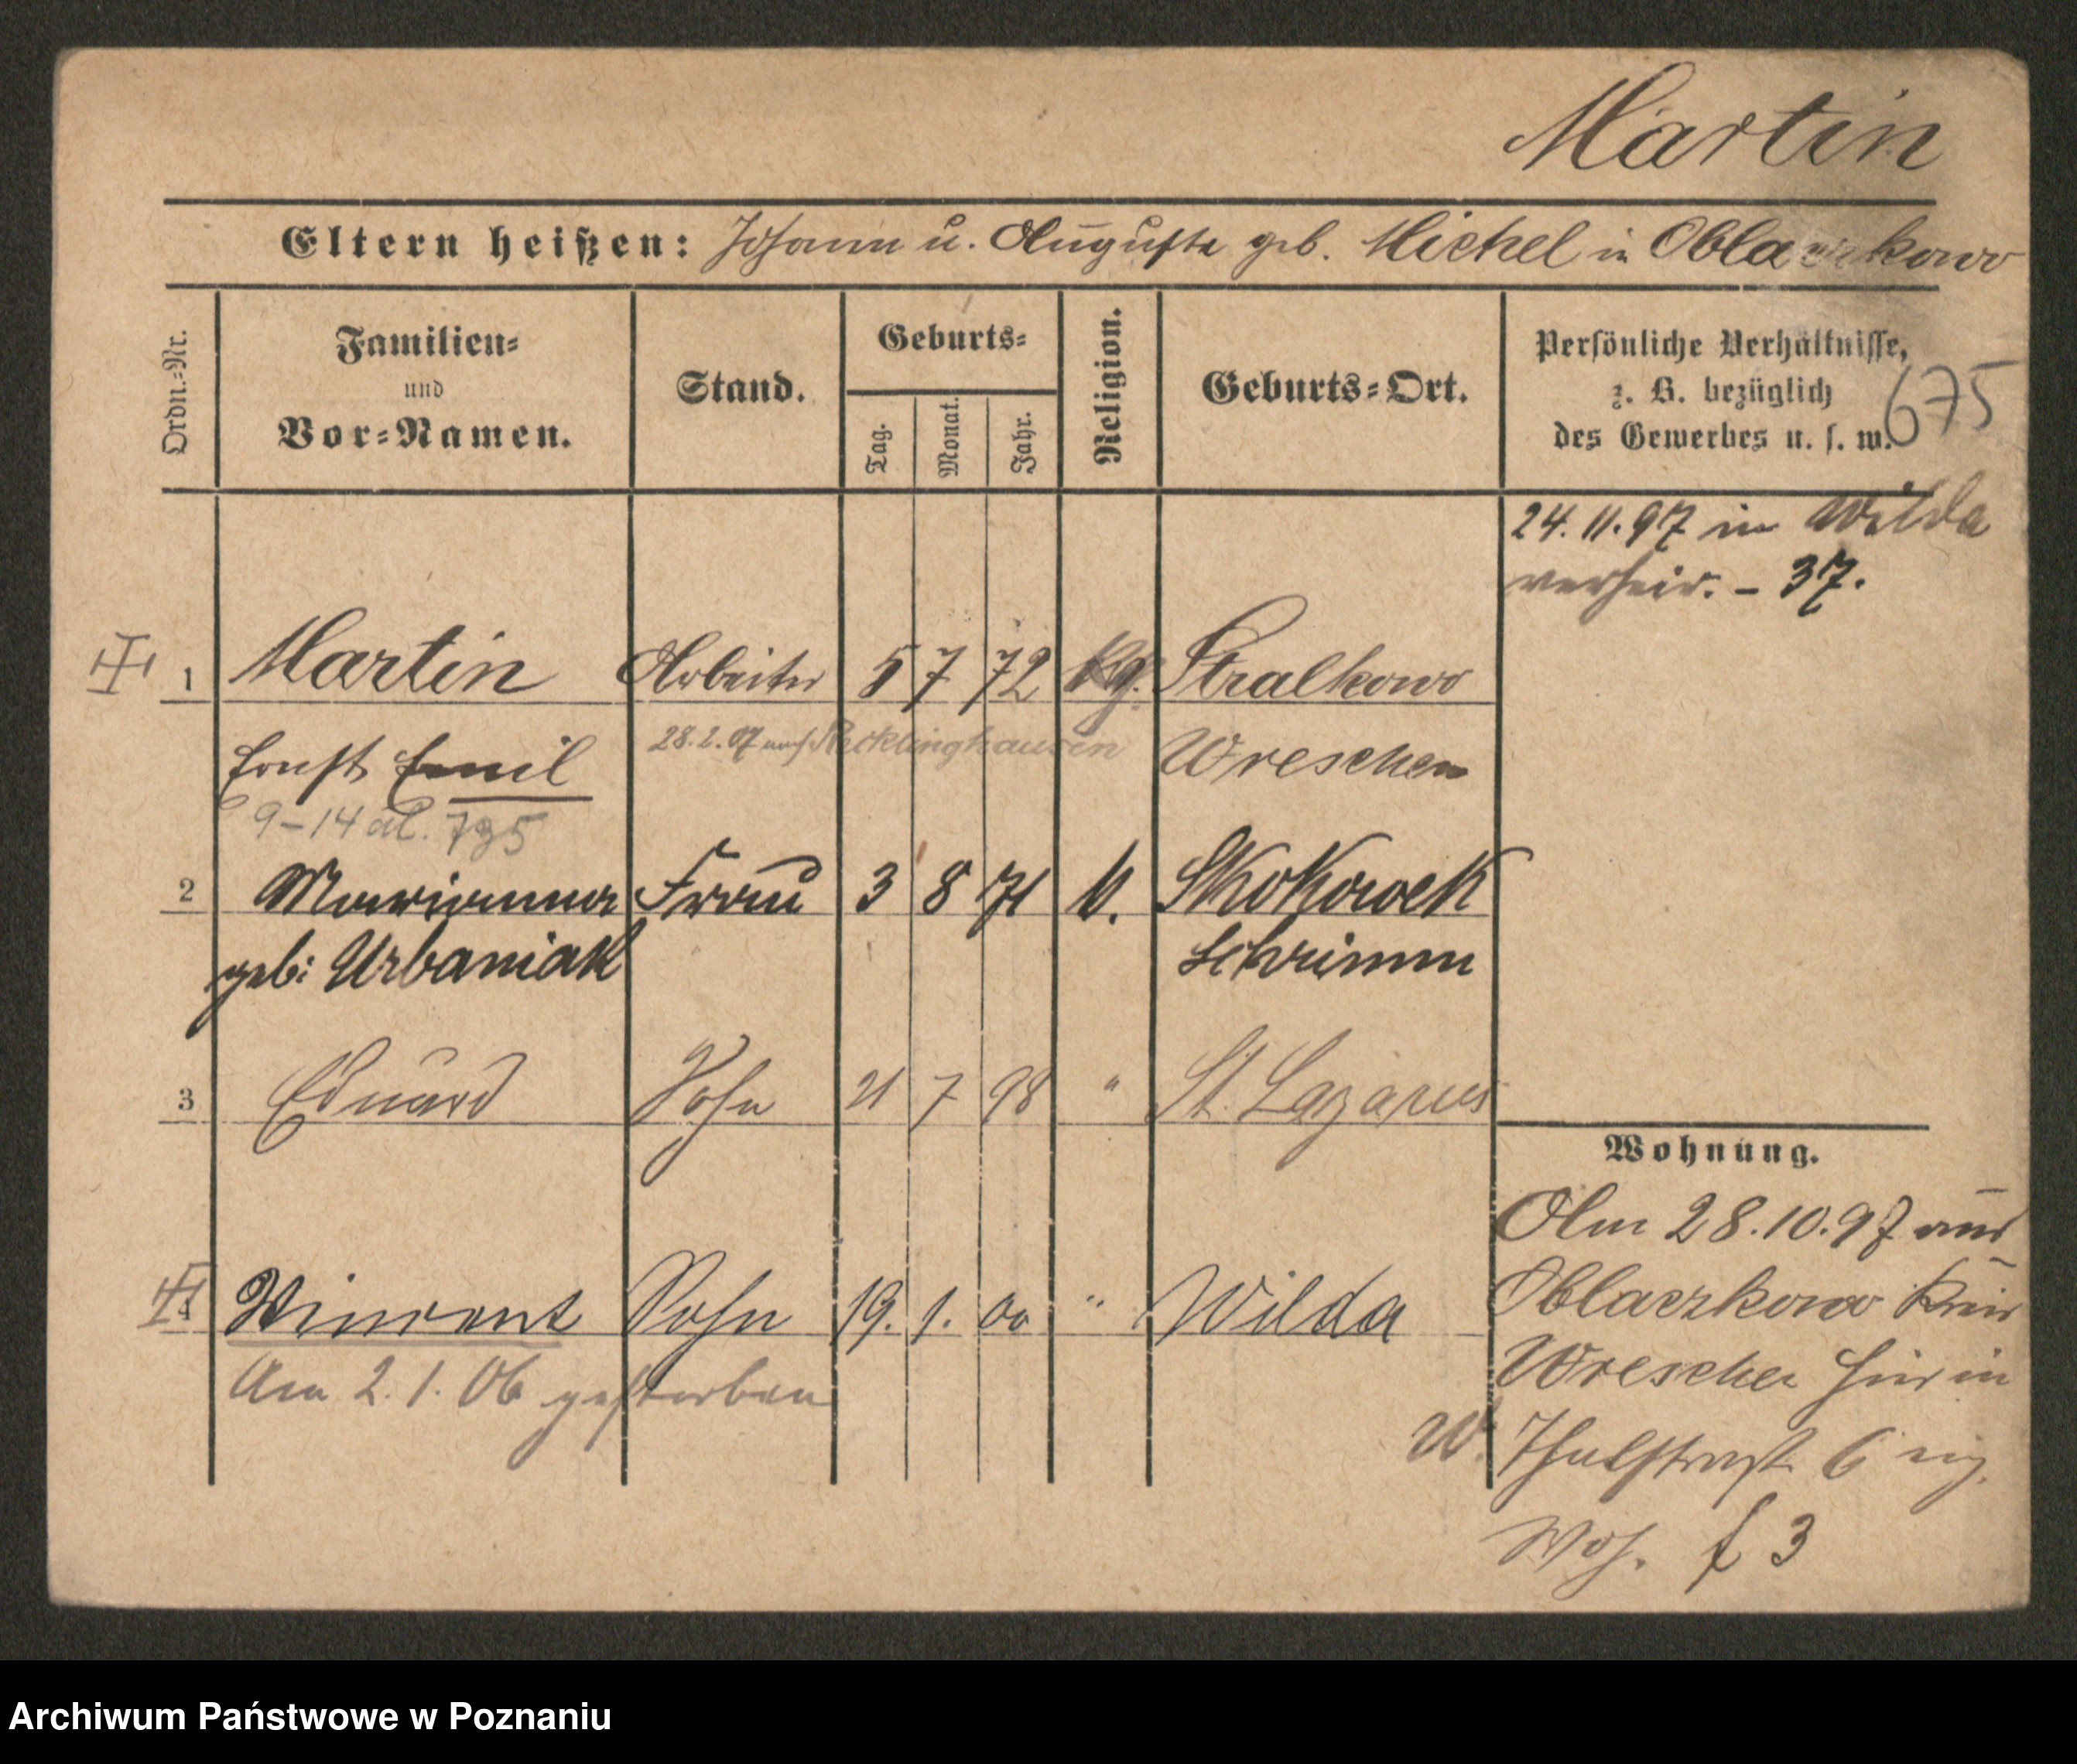 Martin
Eltern heißen: Johann u. Auguste geb. Michel in Oblaczkowo
Ordn.-Nr.
Familien- und Vor-Namen.
Stand.
Geburts-
Tag.
Monat.
Jahr.
Religion.
Geburts-Ort.
Persönliche Verhältnisse,
z. B. bezüglich
des Gewerbes u. s. w.
675
24. 11. 97 in Wilda
verheir. - 37.
1 Martin Arbeiter 5 7 72 Stralkowo
Ernst Emil 28.2.07 nach Recklinghausen Wreschen
9-14 al. 795
2 Marianna Frau 3 8 71 k. Skokowek
geb: Urbaniak Schrimm
3 Eduard Sohn 21 7 98 " St. Lazarus
4 Vincent Sohn 19. 1. 00 " Wilda
Am 2. 1. 06 gestorben
Wohnung.
Am 28.10.97 aus
Oblaczkowo Kreis
Wreschen hier in
W. Thalstraße 6 eig.
Woh. f 3
Archiwum Państwowe w Poznaniu